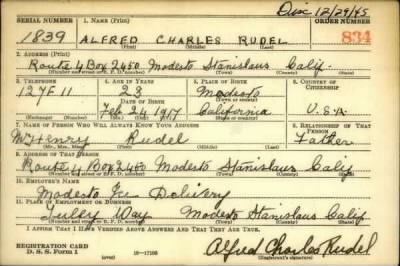 Disc 12/29/45
SERIAL NUMBER 1. NAME (Print) ORDER NUMBER
1839 ALFRED CHARLES RUDEL 834
(First) (Middle) (Last)
2. ADDRESS (Print)
Route 4 Box 2450 Modesto Stanislaus Calif.
(Number and street or R. F. D. number) (Town) (County) (State)
3. TELEPHONE 4. AGE IN YEARS 5. PLACE OF BIRTH 6. COUNTRY OF CITIZENSHIP
127F11 23 Modesto
DATE OF BIRTH (Town or county)
Feb 24 1917 California U.S.A.
(Mo.) (Day) (Yr.) (State or country)
7. NAME OF PERSON WHO WILL ALWAYS KNOW YOUR ADDRESS 8. RELATIONSHIP OF THAT PERSON
Henry Rudel Father
(Mr., Mrs., Miss) (First) (Middle) (Last)
9. ADDRESS OF THAT PERSON
Route 4 Box 2450 Modesto Stanislaus Calif
(Number and street or R. F. D. number) (Town) (County) (State)
10. EMPLOYER'S NAME
Modesto Ice Delivery
11. PLACE OF EMPLOYMENT OR BUSINESS
Tully Way Modesto Stanislaus Calif
(Number and street or R. F. D. number) (Town) (County) (State)
I AFFIRM THAT I HAVE VERIFIED ABOVE ANSWERS AND THAT THEY ARE TRUE.
REGISTRATION CARD
D. S. S. Form 1 (over) 16-17105 Alfred Charles Rudel
(Registrant's signature)